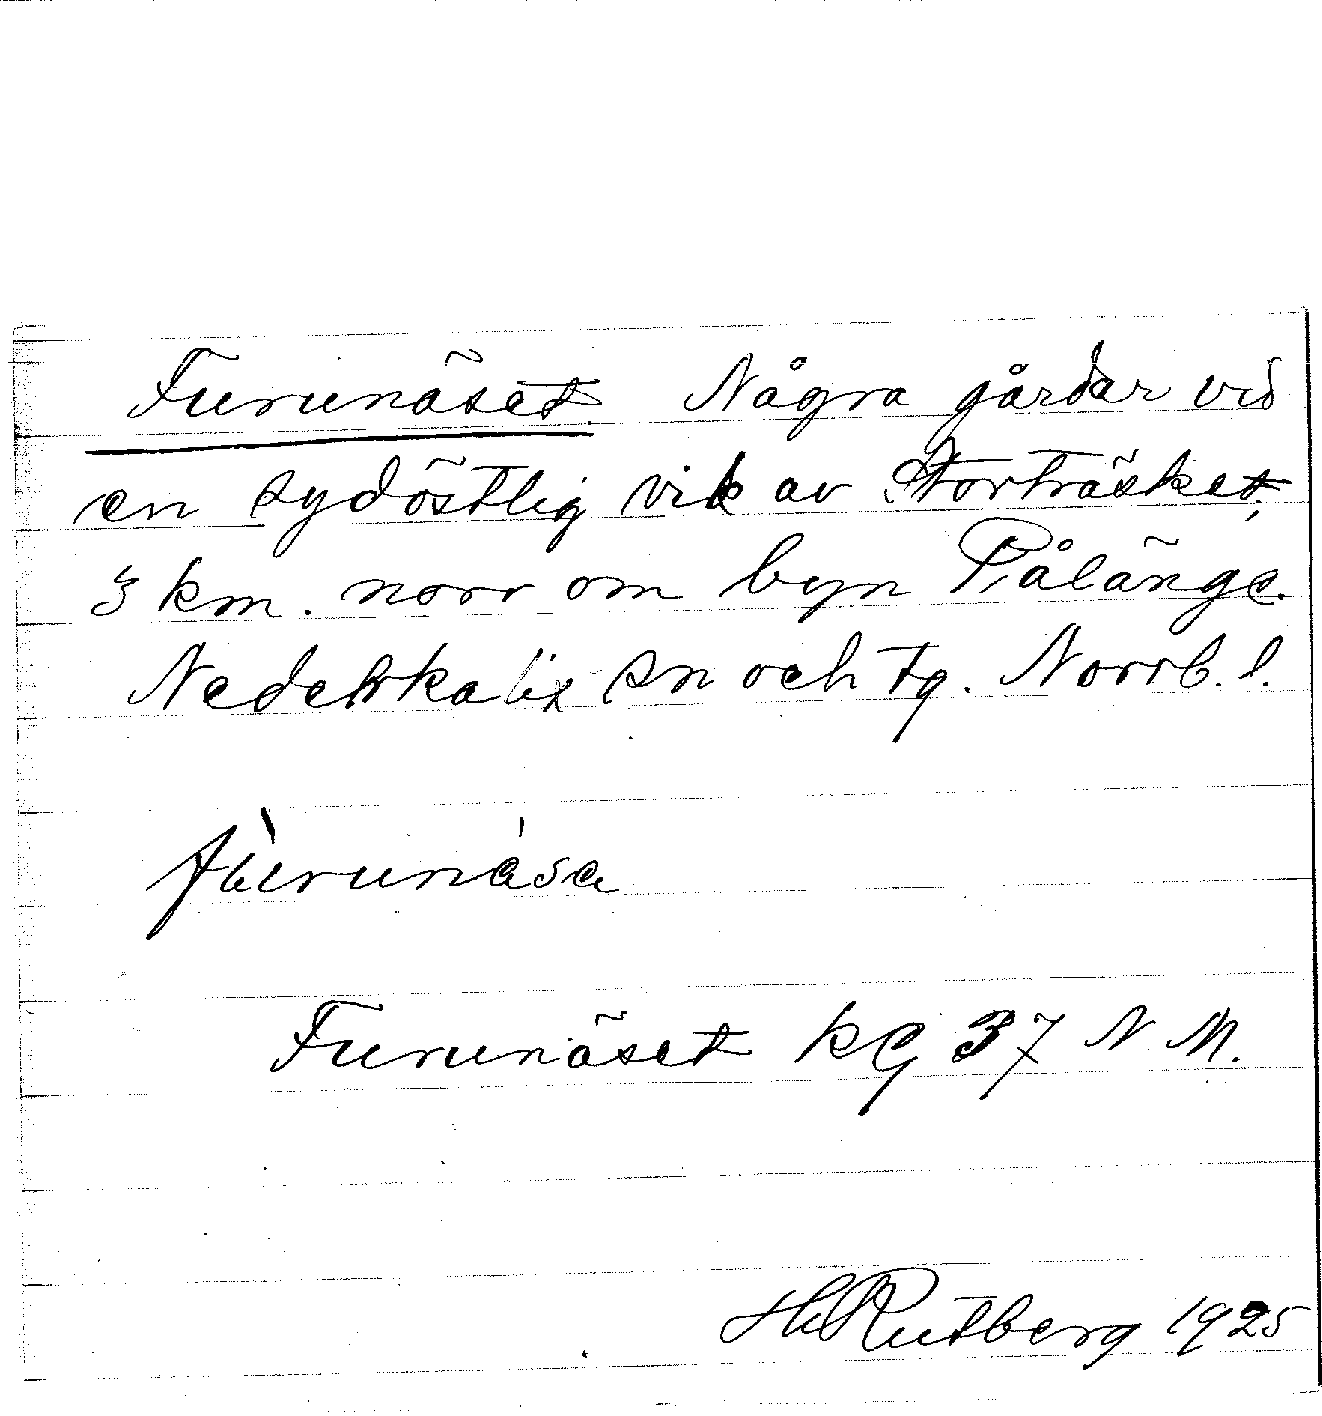 Furunäset. Några gårdar vid
en sydöstlig vik av Storträsket,
3 km. norr om byn Pålänge.
Nederkalix sn och tg. Norrb. l.
Furunäset KG 37 N M.
Hj Rutberg 1925